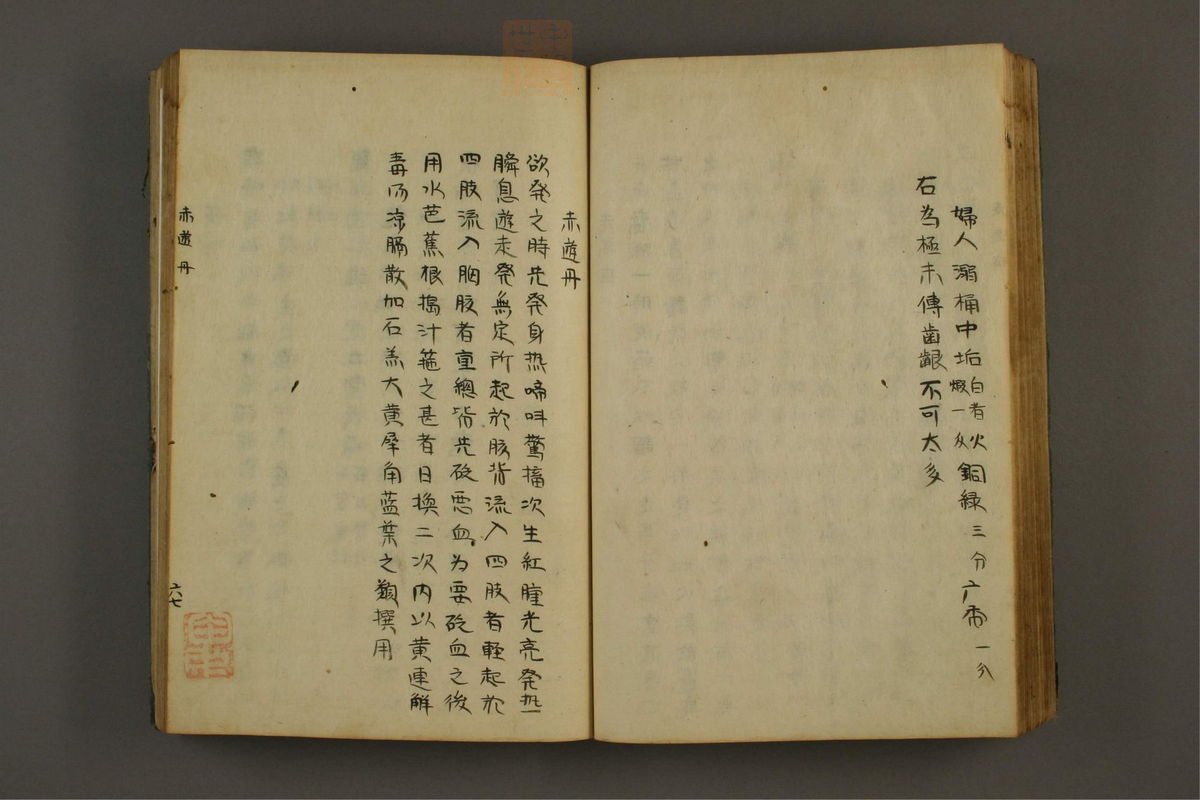 婦人溺桶中垢白者火煅一匁銅緑三分广香一分
右為極末傅齒齦不可太多
赤遊丹
欲発之時先発身热啼呌驚搐次生紅腫光亮発热
瞬息遊走発無定所起於肢背流入四肢者軽起於
四肢流入胸腹者重總皆先砭悪血为要砭血之後
用水芭蕉根搗汁箍之甚者日換二次内以黄連解
毒汤凉膈散加石羔大黄犀角蓝葉之類撰用
赤遊丹
六七